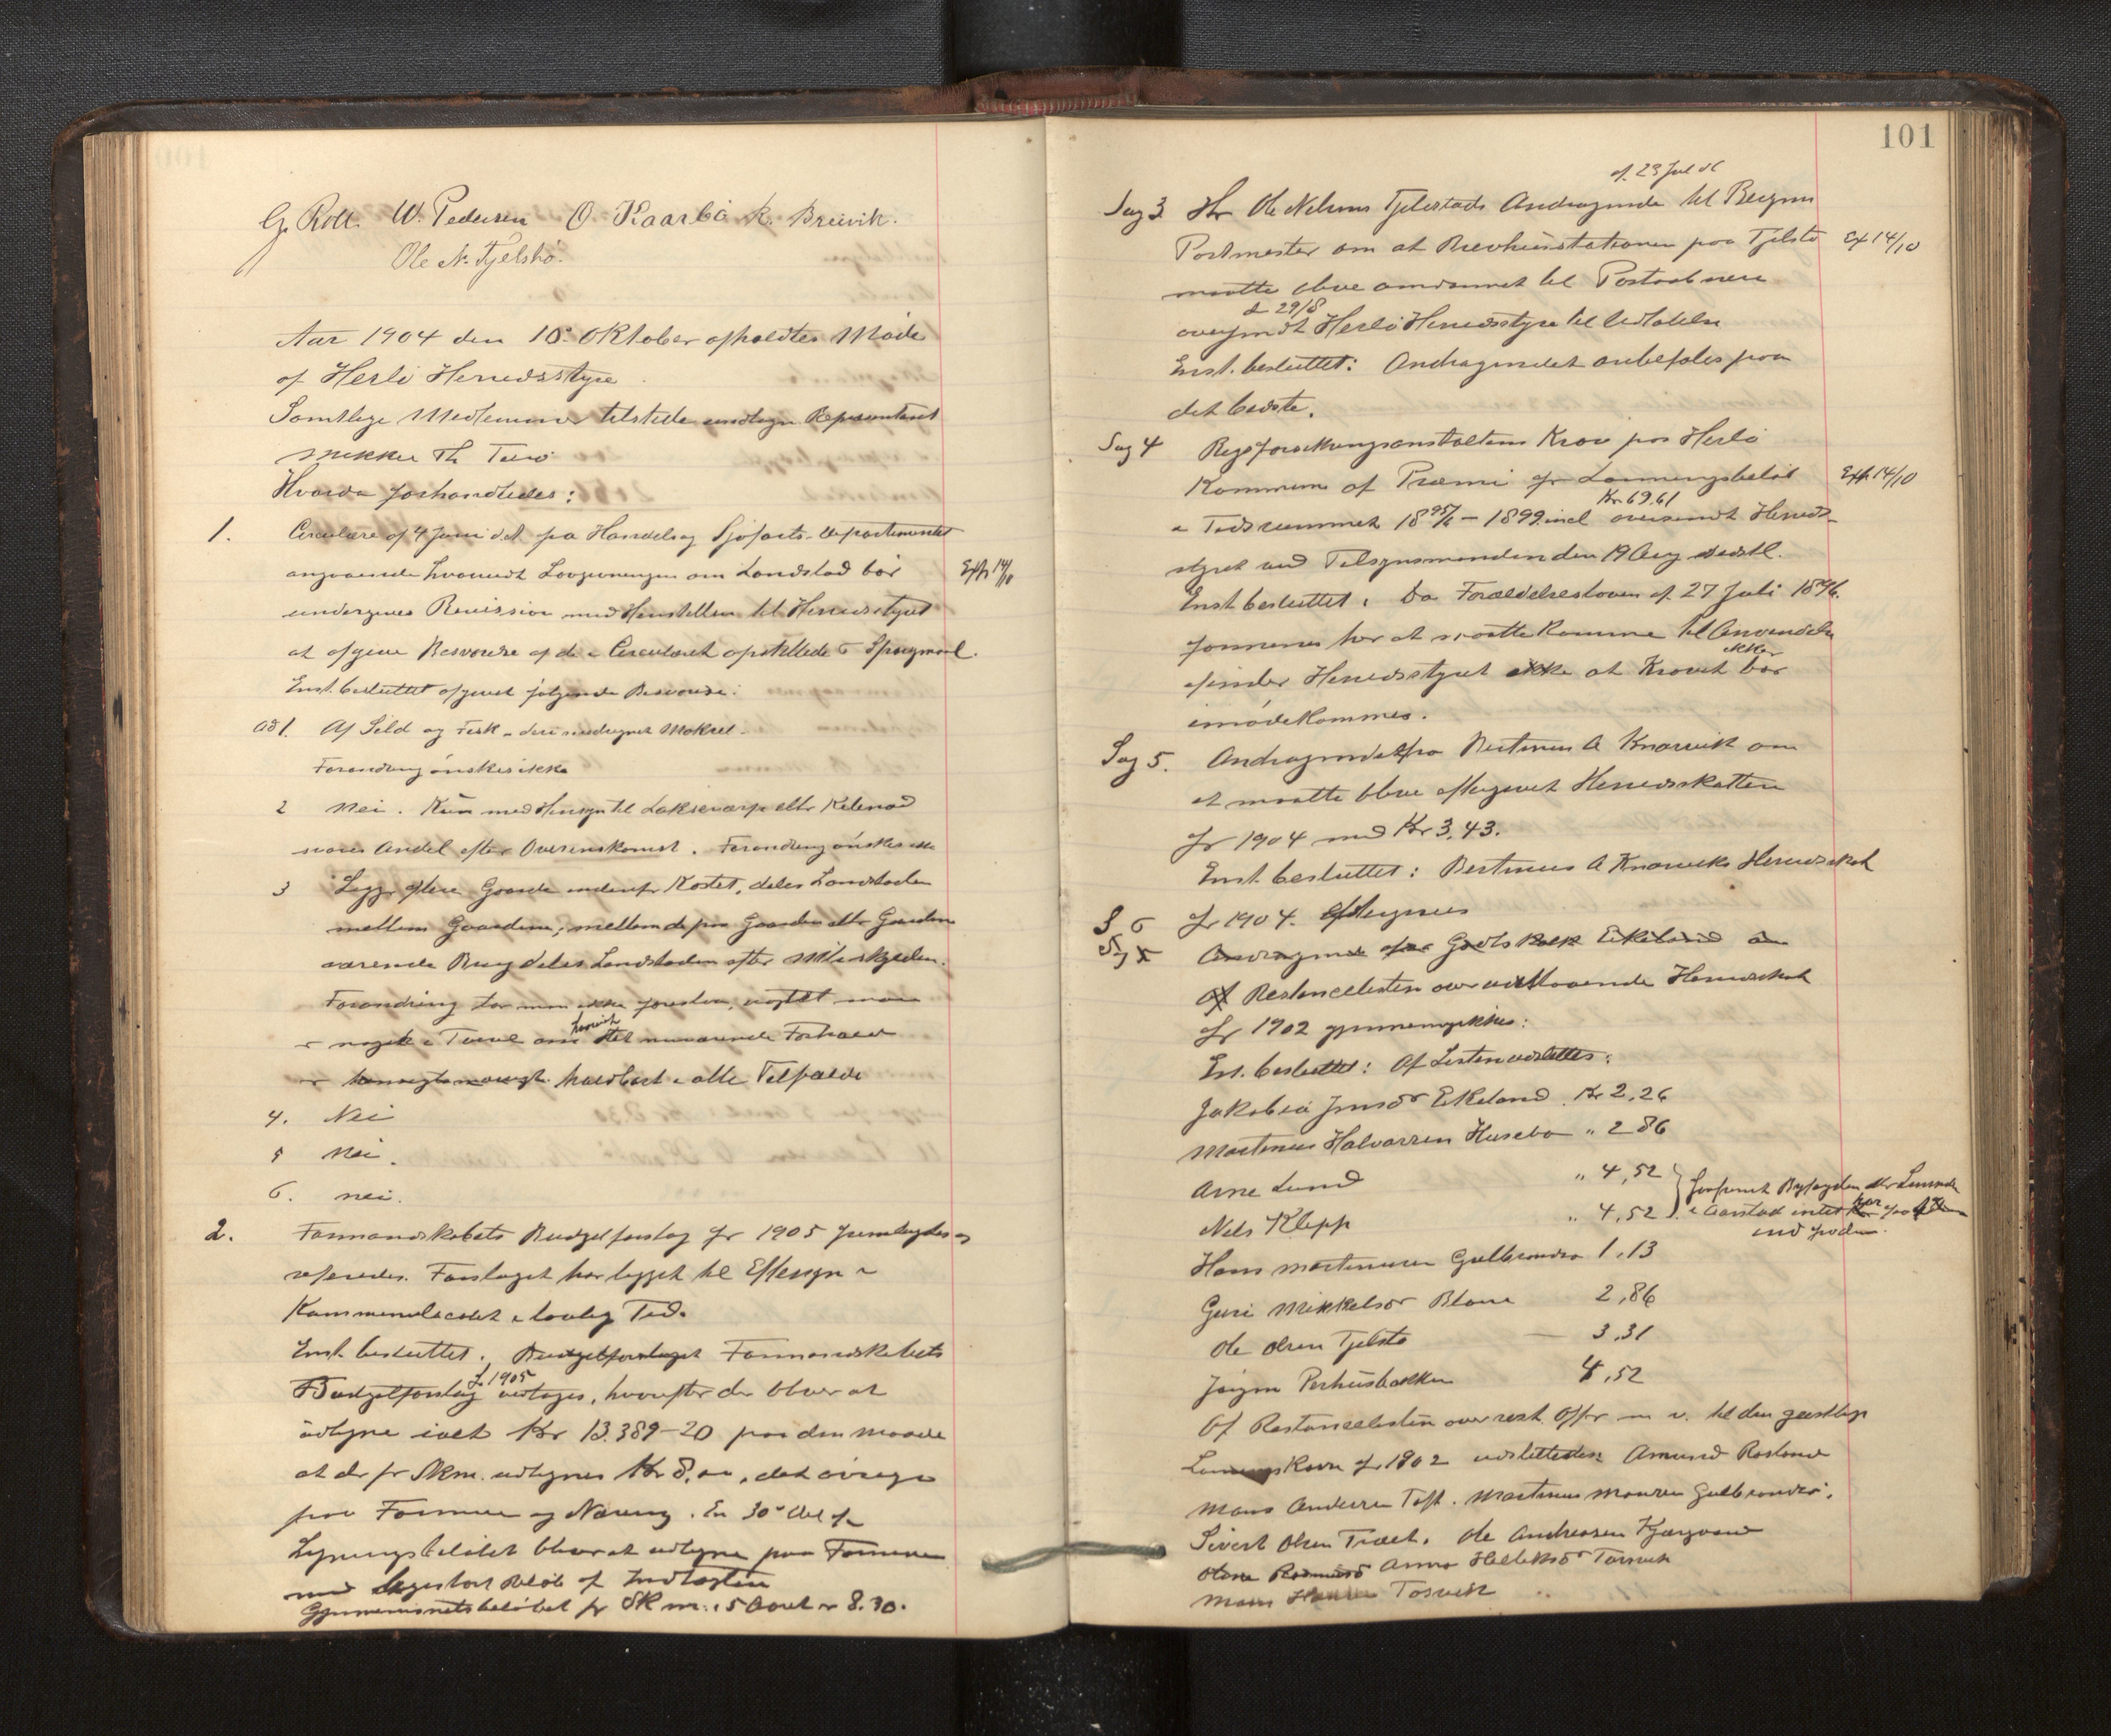 G. Roll. W. Pedersen O. Kaarbö R. Breivik.
Ole N. Fjelstø.
Aar 1904 den 10. Oktober afholdtes Möde
af Herlö Herredsstyre
Samtlige Medlemmer tilstede undtagen Repræsentant
Mikkel Th
Hvorda forhandledes:
1. Circulære af 4 Juni d.A. fra Handels og Sjöfarts-Departementet
angaaende hvorvidt Lovgivningen om Landslod bör
Exp 14/10
undergives Revision med Henstillen til Herredsstyret
at afgive Besvarelse af de i Circulæret opstillede 6 Spörgsmaal.
Enst. besluttet afgivet fölgende Besvarelse:
ad 1. Af Sild og Fisk - deri indregnet Makrel.
Forandring önskes ikke
2 Nei. Kun med Hensyn til Laksevarp eller Kilenod
svares Andel efter Overenskomst. Forandring önskes ikke
3 Ligger flere Gaarde indenfor Kastet, deles Landsloden
mellem Gaardene; mellem de paa Gaarden eller Gaardene
værende Brug deles Landsloden efter Matrikskylden.
Forandring tör man ikke foreslaa, uagtet man
er noget i Tvivl om hvorvidt det nuværende Forhold
er holdbart i alle Tilfælde
4. Nei
5 Nei.
6. nei.
2. Formandskabets Budgetforslag for 1905 fremlagdes og
refereredes. Forslaget har ligget til Eftersyn i
Kommunelocalet i lovlig Tid.
Enst. besluttet. Budgetforslaget Formandskabets
Budgetforslag f. 1905 vedtages, hvorefter der bliver at
udligne ialt Kr 13.389-20 paa den Maade
at der pr Skm. udlignes Kr 8,00, det övrige
paa Formue og Næring. En 30te Del af
Ligningsbelöbet bliver at udligne paa Formue
med ligestort Belöb af Indtægten
Gjennemsnitsbelöbet pr Skm. i 5 Aaret er 8.30.
101
af 23 Juli d6
Sag 3. Hr Ole Nilsens Tjelstads Andragende til Bergens
Postmester om at Brevhusstationen paa Tjelstö
Ex 14/10
maatte blive omdannet til Postaabneri
d 29/8
oversendt Herlö Herredsstyre til Udtalelse
Enst. besluttet: Andragendet anbefales paa
det bedste.
Sag 4 Rigsforsikringsanstaltens Krav paa Herlö
Kommune af Præmie for Lönningsbelöb
Exp 14/10
Kr 69.61
i Tidsrummet 1895/6 - 1899 incl oversendt Herreds-
styret ved Tilsynsmanden den 19 Aug
Enst besluttet: Da Forældelsesloven af 27 Juli 1896.
formenes her at maatte komme til Anvendelse
ikke
finder Herredsstyret ikke at Kravet bör
imödekommes.
Sag 5. Andragendet fra Bertinus A Knarvik om
at maatte blive eftergivet Herredsskatten
for 1904 med Kr 3,43.
Enst. besluttet: Bertinus A Knarviks Herredsskat
for 1904. eftergives
S 6 Andragende fra Godtskalk Eikeland om
Af Restancelisten over udestaaende Herredsskat
for 1902 gjennemgikkes:
Ens. besluttet: Af Listen udslettes:
Jakobia Jensdr Eikeland. Kr 2,26
Martinus Halvorsen Husebö " 2 86
Arne Lund " 4,52
Nels Klepp " 4,52
Hans Martinusen Gulbrandsö 1,13
Guri Mikkelsdr Blom 2,86
Ole Olsen Tjelstö — 3.31
Jörgen Perhusbakken 4,52
Af Restancelisten over rest. Offer m v. til den geistlige
for 1902 udslettedes: Amund Rosland
Mons Andersen Toft. Martinus Monsen Gulbrandsö.
Sivert Olsen Træet. Ole Andreassen Kjærgaard
Anna
Mons Hansen Torsvik